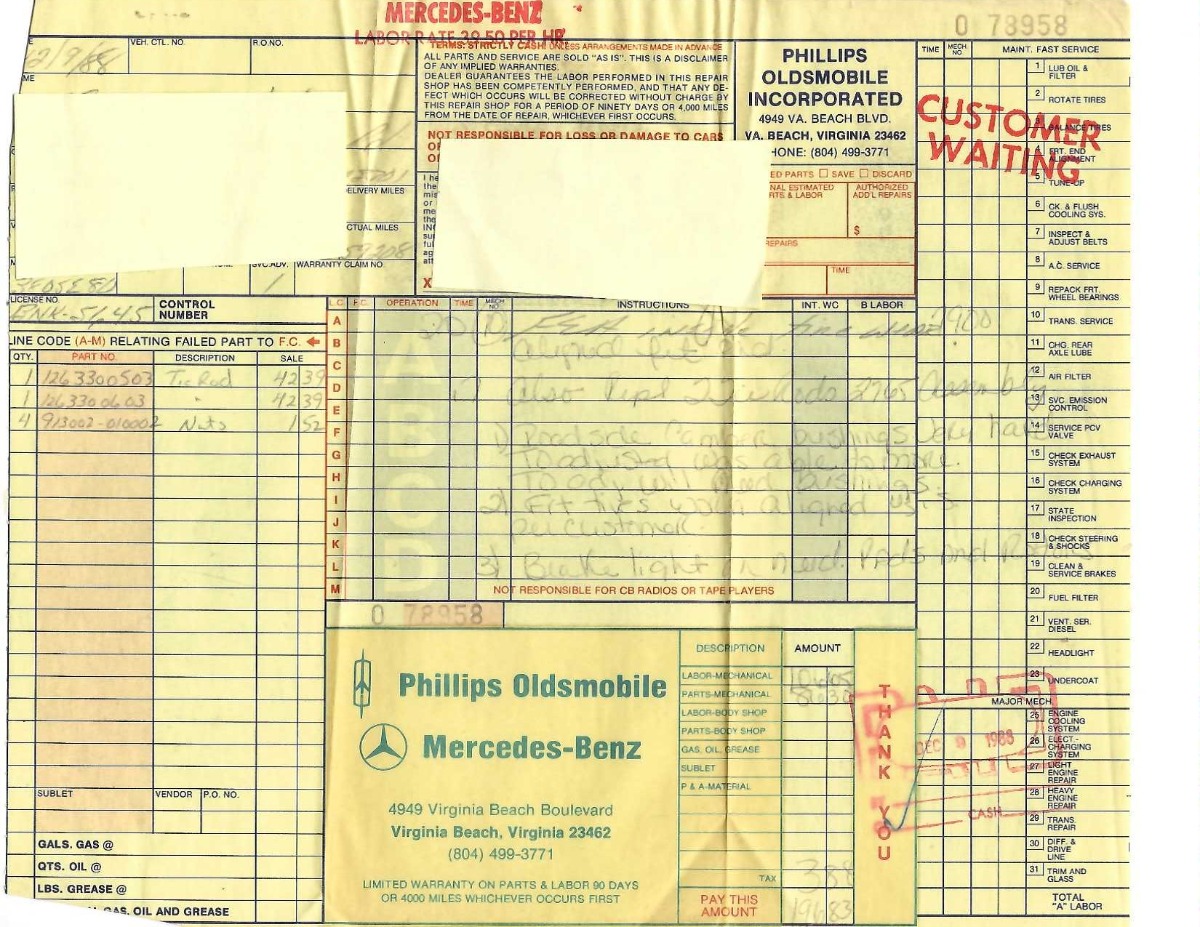 MERCEDES-BENZ
LABOR RATE 39.50 PER HR.
0 78958
12/9/88
VEH. CTL. NO.
R.O.NO.
TERMS: STRICTLY CASH! UNLESS ARRANGEMENTS MADE IN ADVANCE
ALL PARTS AND SERVICE ARE SOLD "AS IS". THIS IS A DISCLAIMER
OF ANY IMPLIED WARRANTIES.
DEALER GUARANTEES THE LABOR PERFORMED IN THIS REPAIR
SHOP HAS BEEN COMPETENTLY PERFORMED, AND THAT ANY DE-
FECT WHICH OCCURS WILL BE CORRECTED WITHOUT CHARGE BY
THIS REPAIR SHOP FOR A PERIOD OF NINETY DAYS OR 4,000 MILES
FROM THE DATE OF REPAIR, WHICHEVER FIRST OCCURS.
NOT RESPONSIBLE FOR LOSS OR DAMAGE TO CARS
PHILLIPS
OLDSMOBILE
INCORPORATED
4949 VA. BEACH BLVD.
VA. BEACH, VIRGINIA 23462
HONE: (804) 499-3771
ED PARTS ☐ SAVE ☐ DISCARD
NAL ESTIMATED
RTS & LABOR
AUTHORIZED
ADD'L REPAIRS
$
EPAIRS
TIME
X
ELIVERY MILES
CTUAL MILES
59208
SVC.ADV.
WARRANTY CLAIM NO.
1
LICENSE NO.
ENK-5645
CONTROL
NUMBER
LINE CODE (A-M) RELATING FAILED PART TO F.C.
QTY. PART NO. DESCRIPTION SALE
1 1263300503 Tie Rod 42 39
1 1263300603 " 42 39
4 913002-010002 Nuts 1 52
SUBLET VENDOR P.O. NO.
GALS. GAS @
QTS. OIL @
LBS. GREASE @
GAS, OIL AND GREASE
L.C. F.C. OPERATION TIME MECH NO. INSTRUCTIONS INT. WC B LABOR
A
B
C
D
E
F
G
H
I
J
K
L
M
Aligned frt end
Also Repl 2 tie Rods 2765 Assembly
1) Roadside Camber bushings Very hard
To adjust was able to move.
To adj will need bushings.
2) Frt tires when Aligned
per customer.
3) Brake light on need Pads and Rotors
NOT RESPONSIBLE FOR CB RADIOS OR TAPE PLAYERS
0 78958
Phillips Oldsmobile
Mercedes-Benz
4949 Virginia Beach Boulevard
Virginia Beach, Virginia 23462
(804) 499-3771
LIMITED WARRANTY ON PARTS & LABOR 90 DAYS
OR 4000 MILES WHICHEVER OCCURS FIRST
DESCRIPTION AMOUNT
LABOR-MECHANICAL
PARTS-MECHANICAL 86 30
LABOR-BODY SHOP
PARTS-BODY SHOP
GAS, OIL, GREASE
SUBLET
P & A-MATERIAL
TAX 3 88
PAY THIS
AMOUNT 196 83
THANK YOU
TIME MECH NO. MAINT. FAST SERVICE
CUSTOMER
WAITING
1 LUB OIL & FILTER
2 ROTATE TIRES
3 BALANCE TIRES
4 FRT. END ALIGNMENT
5 TUNE-UP
6 CK. & FLUSH COOLING SYS.
7 INSPECT & ADJUST BELTS
8 A.C. SERVICE
9 REPACK FRT. WHEEL BEARINGS
10 TRANS. SERVICE
11 CHG. REAR AXLE LUBE
12 AIR FILTER
13 SVC. EMISSION CONTROL
14 SERVICE PCV VALVE
15 CHECK EXHAUST SYSTEM
16 CHECK CHARGING SYSTEM
17 STATE INSPECTION
18 CHECK STEERING & SHOCKS
19 CLEAN & SERVICE BRAKES
20 FUEL FILTER
21 VENT. SER. DIESEL
22 HEADLIGHT
23 UNDERCOAT
MAJOR MECH.
25 ENGINE COOLING SYSTEM
26 ELECT.- CHARGING SYSTEM
27 LIGHT ENGINE REPAIR
28 HEAVY ENGINE REPAIR
29 TRANS. REPAIR
30 DIFF. & DRIVE LINE
31 TRIM AND GLASS
TOTAL
"A" LABOR
PAID
DEC 9 1988
CASH